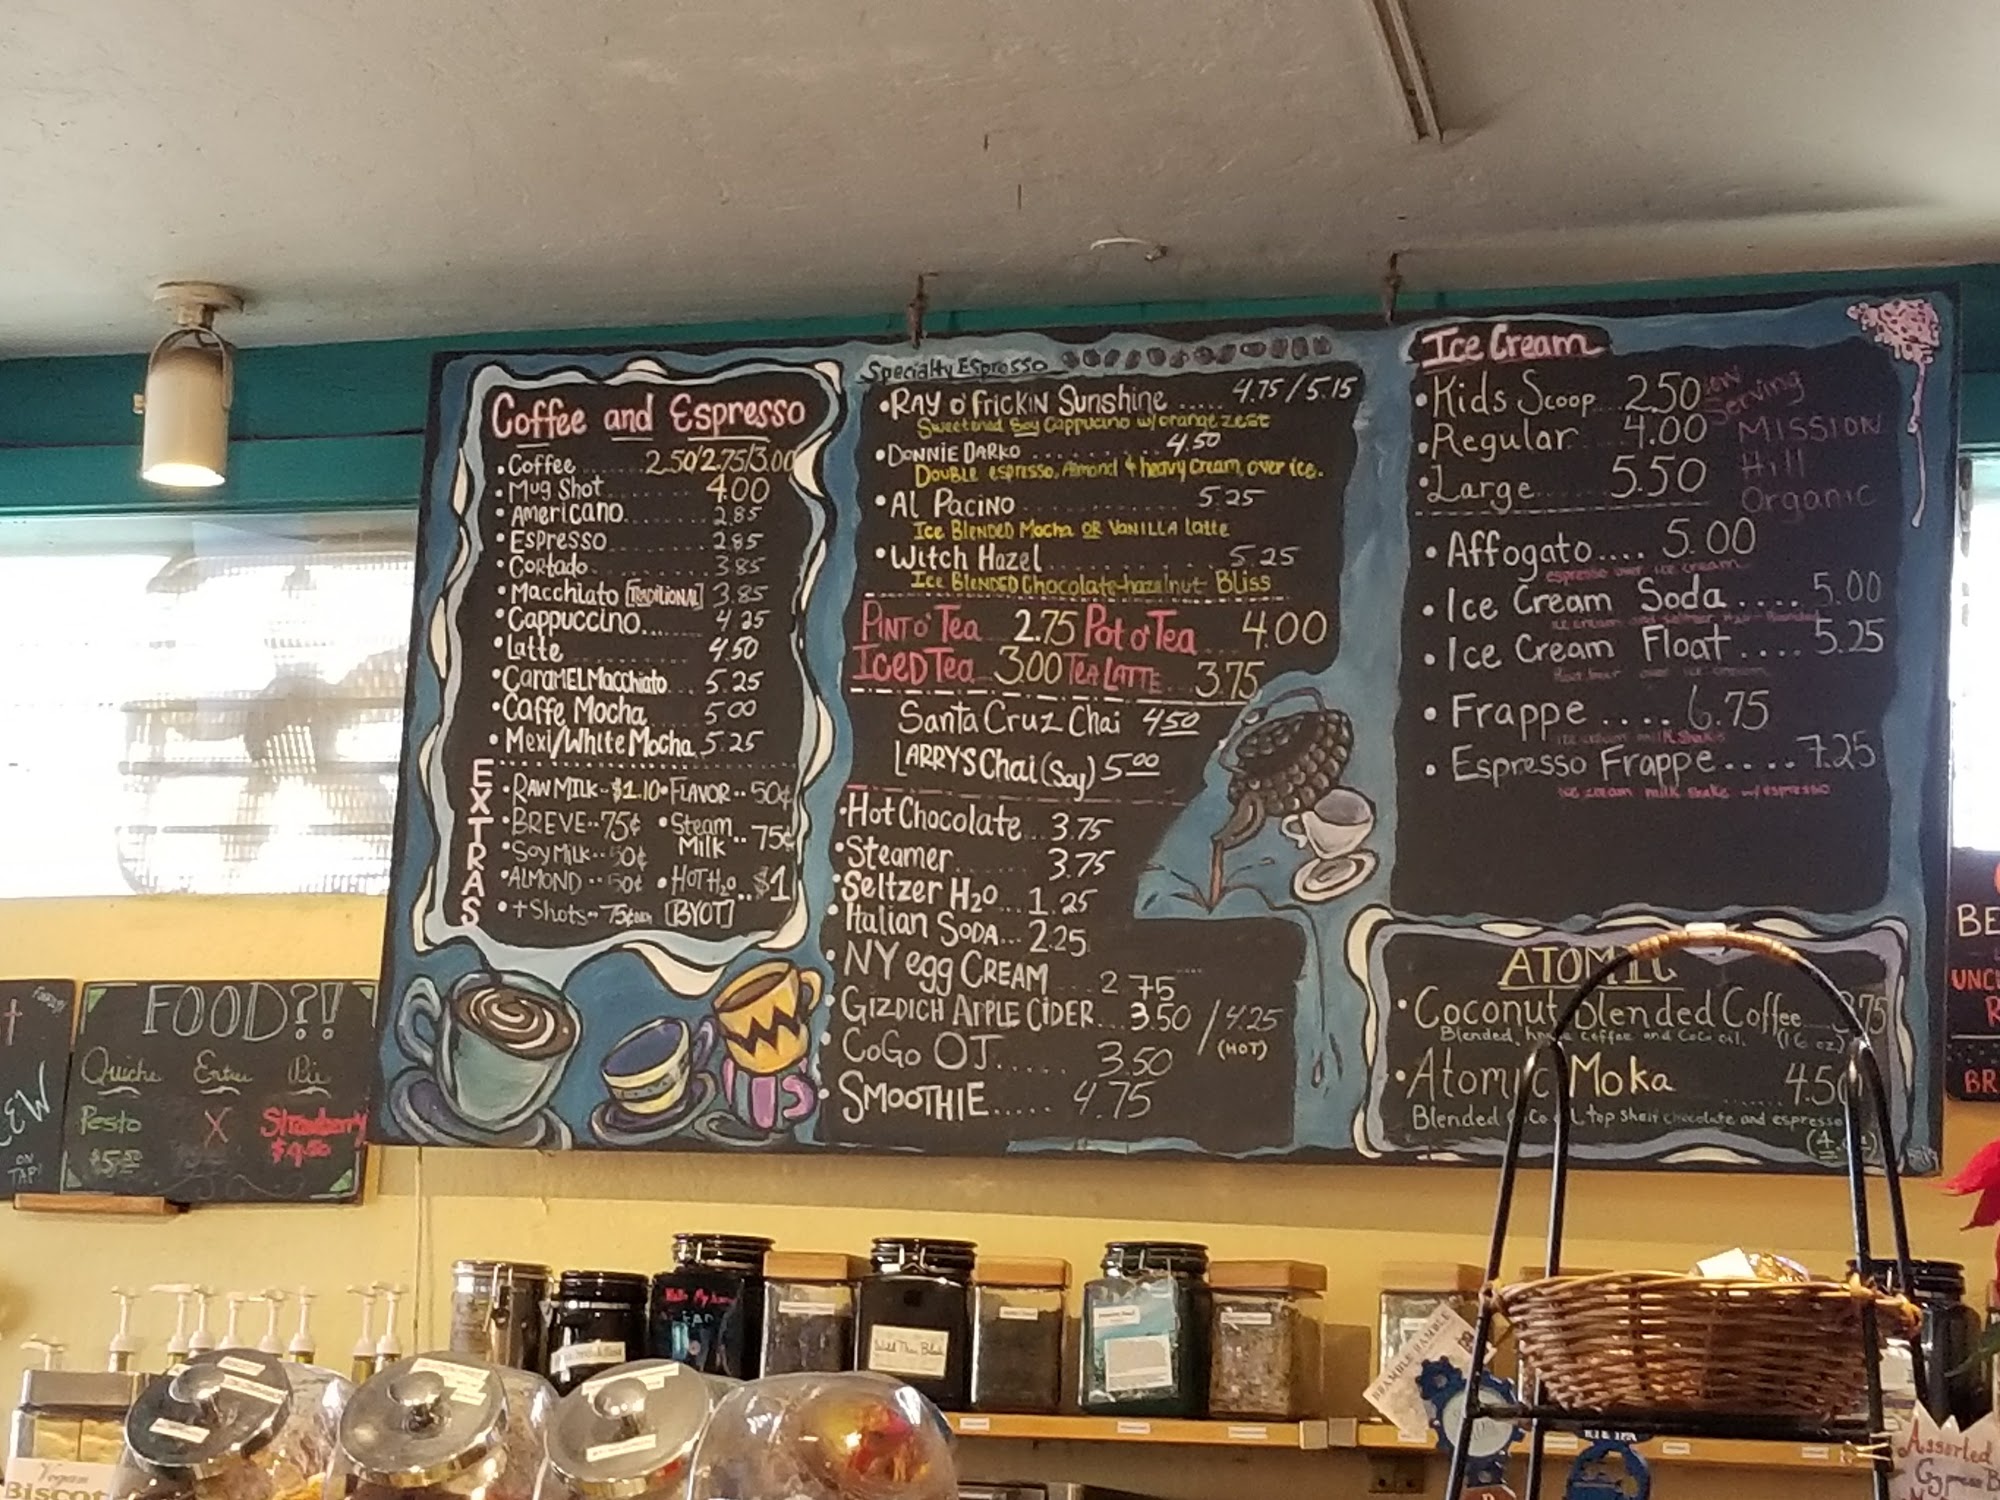 Coffee and Espresso
• Coffee ........ 2.50/2.75/3.00
• Mug Shot ........ 4.00
• Americano ........ 2.85
• Espresso ........ 2.85
• Cortado ........ 3.85
• Macchiato [TRADITIONAL] 3.85
• Cappuccino... 4.25
• Latte ........ 4.50
• CARAMEL Macchiato ... 5.25
• Caffe Mocha ... 5.00
• Mexi/White Mocha . 5.25
EXTRAS
• RAW MILK -- $1.10 • FLAVOR .. 50¢
• BREVE -- 75¢ • Steam Milk .. 75¢
• Soy Milk -- 50¢
• ALMOND .. 50¢ • HOT H2O .. $1
• + Shots -- 75¢ [BYOT]
Specialty Espresso
• RAY O' FRICKIN Sunshine ..... 4.75/5.15
Sweetened Soy Cappucino w/orange zest
• DONNIE DARKO ........ 4.50
DOUBLE espresso, Almond & heavy cream, over ice.
• Al Pacino ........ 5.25
Ice Blended Mocha OR VANILLA latte
• Witch Hazel ........ 5.25
Ice BLENDED Chocolate-hazelnut Bliss
PINT O' Tea ... 2.75 Pot o' Tea ... 4.00
ICED Tea ... 3.00 TEA LATTE ... 3.75
Santa Cruz Chai 4.50
LARRYS Chai (Soy) 5.00
• Hot Chocolate ... 3.75
• Steamer ... 3.75
• Seltzer H2O ... 1.25
• Italian SODA ... 2.25
• NY egg CREAM ... 2.75
• GIZDICH APPLE CIDER ... 3.50 / 4.25
(HOT)
• CoGo OJ ..... 3.50
• SMOOTHIE ..... 4.75
Ice Cream
• Kids Scoop ... 2.50
• Regular ... 4.00
• Large ... 5.50
Now Serving
MISSION
Hill
Organic
• Affogato .... 5.00
espresso over ice cream
• Ice Cream Soda .... 5.00
• Ice Cream Float .... 5.25
• Frappe .... 6.75
ice cream milk shake
• Espresso Frappe .... 7.25
ice cream milk shake w/espresso
ATOMIC
• Coconut Blended Coffee
Blended, coffee and CoCo oil. (16 oz)
• Atomic Moka 4.50
Blended top shelf chocolate and espresso
FOOD?!
Quiche Entree Pie
Pesto X Strawberry
$5.50 $4.50
NEW
ON TAP!
BE
UNC
BR
BRAMBLE RAMBLE
Vegan
Biscot
Assorted